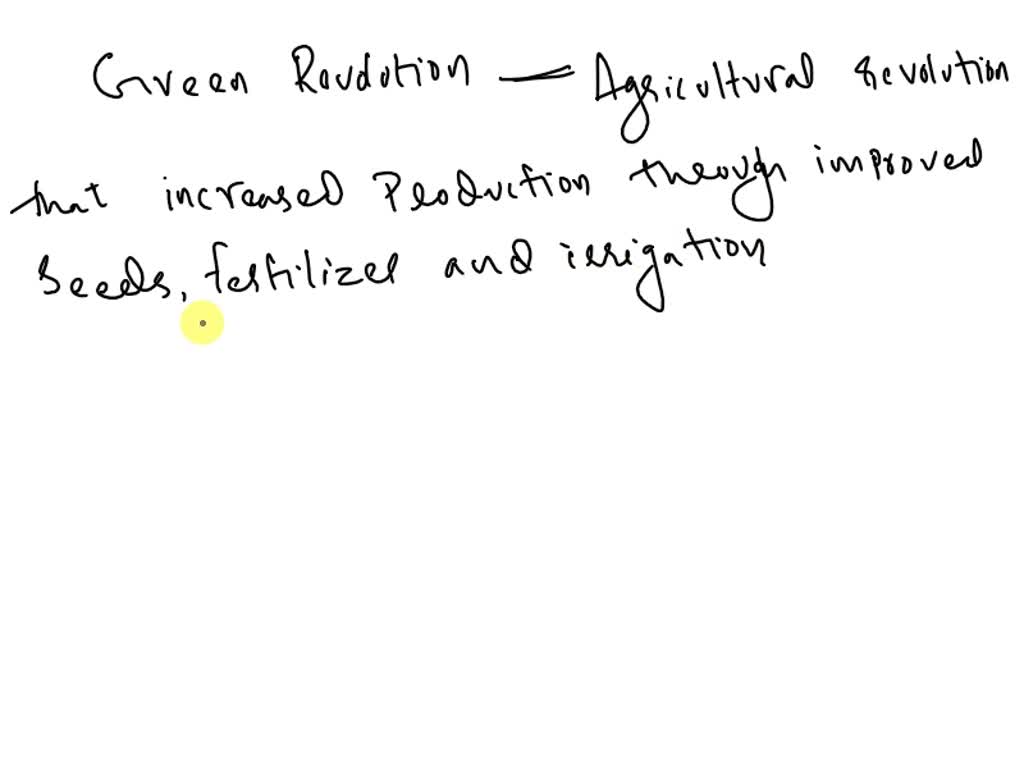 Green Revolution — Agricultural revolution
that increased Production through improved
seeds, fertilizer and irrigation